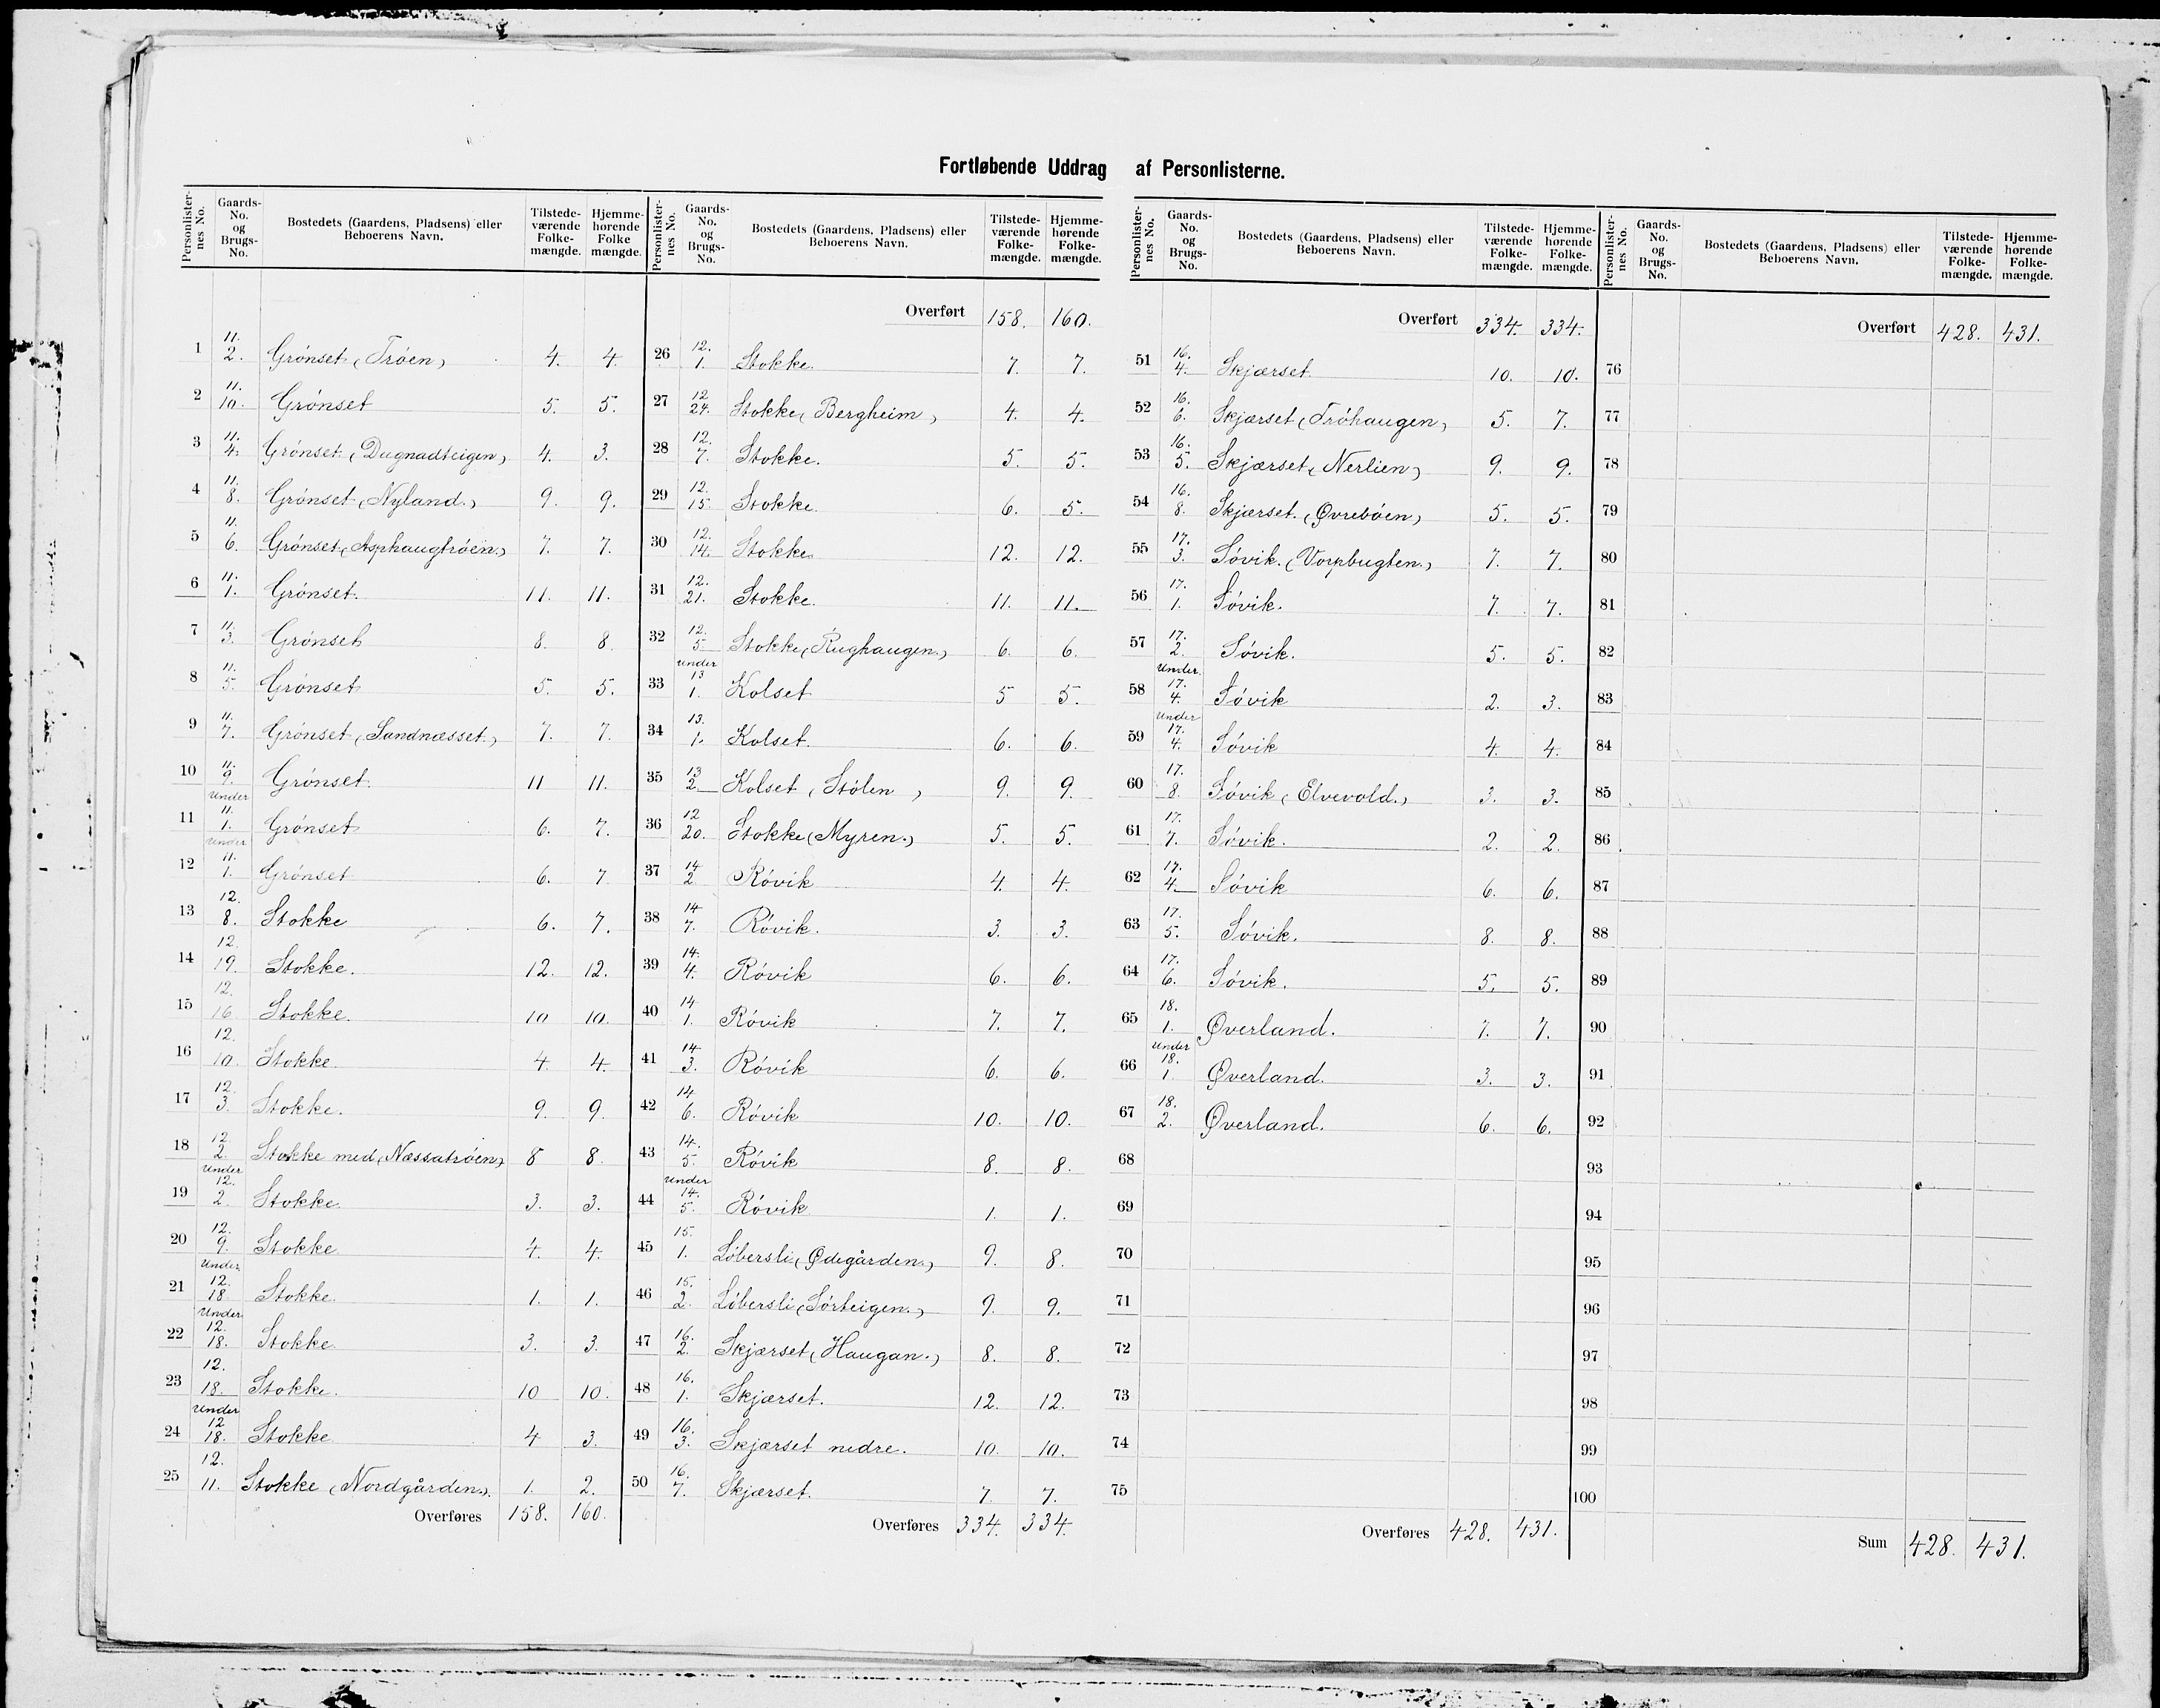 Fortløbende Uddrag af Personlisterne.
Personlisternes No. Gaards-No. og Brugs-No. Bostedets (Gaardens, Pladsens) eller Beboerens Navn. Tilstedeværende Folkemængde. Hjemmehørende Folkemængde.
1 11. 2. Grönset (Tröen) 4. 4.
2 11. 10. Grönset 5. 5.
3 11. 4. Grönset (Dugnadteigen) 4. 3.
4 11. 8. Grönset (Nyland.) 9. 9.
5 11. 6. Grönset (Asphaugtröen.) 7. 7.
6 11. 1. Grönset. 11. 11.
7 11. 3. Grönset 8. 8.
8 11. 5. Grönset 5. 5.
9 11. 7. Grönset (Sandnæsset.) 7. 7.
10 11. 9. Grönset. 11 11.
11 Under 11. 1. Grönset 6. 7.
12 Under 11. 1. Grönset 6. 7
13 12. 8. Stokke 6. 7.
14 12. 19. Stokke. 12. 12.
15 12. 16 Stokke. 10 10.
16 12. 10. Stokke 4 4.
17 12. 3. Stokke. 9. 9.
18 12. 2. Stokke med (Næssatröen) 8 8.
19 Under 12. 2. Stokke. 3. 3.
20 12. 9. Stokke 4. 4.
21 Under 12. 18. Stokke. 1. 1.
22 Under 12. 18. Stokke. 3. 3.
23 12. 18. Stokke. 10 10.
24 Under 12 18. Stokke 4 3.
25 12. 11. Stokke (Nordgården.). 1. 2.
Overføres 158. 160.
Personlisternes No. Gaards-No. og Brugs-No. Bostedets (Gaardens, Pladsens) eller Beboerens Navn. Tilstedeværende Folkemængde. Hjemmehørende Folkemængde.
Overført 158. 160.
26 12. 1. Stokke. 7. 7.
27 12. 24. Stokke (Bergheim) 4. 4.
28 12. 7. Stokke. 5. 5.
29 12. 15. Stokke. 6. 5.
30 12. 14. Stokke 12. 12.
31 12. 21. Stokke. 11. 11.
32 12. 5. Stokke (Rughaugen.) 6. 6.
33 Under 13 1. Kolset 5 5.
34 13. 1. Kolset. 6. 6.
35 13 2. Kolset (Stölen) 9. 9.
36 12 20. Stokke (Myren.) 5. 5.
37 14 2 Rövik 4. 4.
38 14 7. Rövik. 3. 3.
39 14. 4. Rövik 6. 6.
40 14 1. Rövik 7. 7.
41 14 3. Rövik 6. 6.
42 14 6. Rövik 10. 10.
43 14. 5. Rövik 8. 8.
44 Under 14. 5. Rövik 1. 1.
45 15. 1. Löbersli (Ødegården.) 9. 8.
46 15. 2. Löbersli (Sörteigen.) 9. 9.
47 16. 2. Skjærset (Haugan.) 8. 8.
48 16. 1. Skjærset. 12. 12.
49 16. 3. Skjærset nedre. 10. 10.
50 16. 7. Skjærset. 7. 7.
Overføres 334. 334.
Personlisternes No. Gaards-No. og Brugs-No. Bostedets (Gaardens, Pladsens) eller Beboerens Navn. Tilstedeværende Folkemængde. Hjemmehørende Folkemængde.
Overført 334. 334.
51 16. 4. Skjærset 10. 10.
52 16. 6. Skjærset (Tröhaugen) 5. 7.
53 16. 5. Skjærset (Nerlien) 9. 9.
54 16. 8. Skjærset. (Øvreböen) 5. 5.
55 17. 3. Sövik. (Vorpbugten.) 7. 7.
56 17. 1. Sövik. 7. 7.
57 17. 2. Sövik. 5. 5.
58 Under 17. 4. Sövik 2. 3.
59 Under 17. 4. Sövik 4. 4.
60 17. 8. Sövik (Elvevold.) 3. 3.
61 17. 7. Sövik. 2. 2.
62 17. 4. Sövik 6. 6.
63 17. 5. Sövik. 8. 8.
64 17. 6. Sövik. 5. 5.
65 18. 1. Øverland. 7. 7.
66 Under 18. 1. Øverland. 3. 3.
67 18. 2. Øverland. 6. 6.
68
69
70
71
72
73
74
75
Overføres 428. 431.
Personlisternes No. Gaards-No. og Brugs-No. Bostedets (Gaardens, Pladsens) eller Beboerens Navn. Tilstedeværende Folkemængde. Hjemmehørende Folkemængde.
Overført 428. 431.
76
77
78
79
80
81
82
83
84
85
86
87
88
89
90
91
92
93
94
95
96
97
98
99
100
Sum 428. 431.